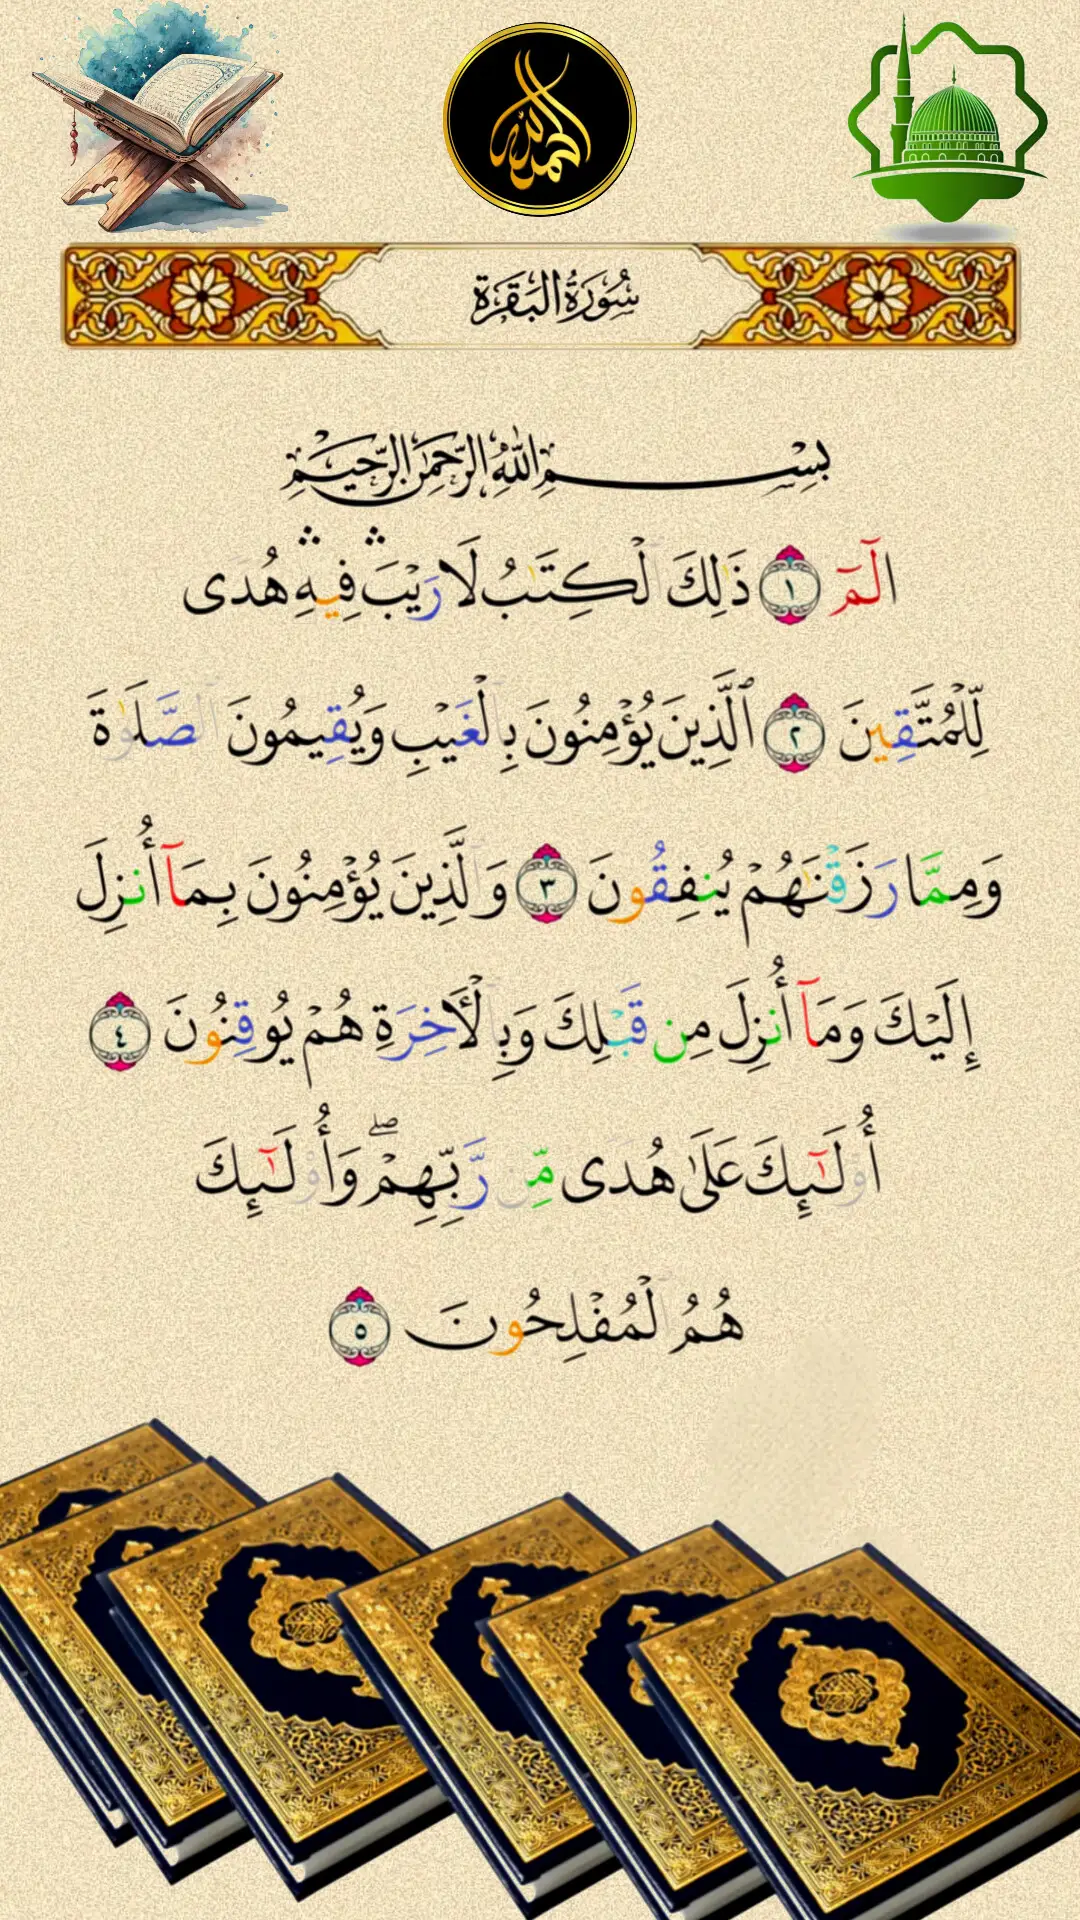 الحمد لله
سُورَةُ الْبَقَرَةِ
بِسْمِ اللَّهِ الرَّحْمَٰنِ الرَّحِيمِ
الٓمٓ ١ ذَٰلِكَ ٱلْكِتَٰبُ لَا رَيْبَ ۛ فِيهِ ۛ هُدًى
لِّلْمُتَّقِينَ ٢ ٱلَّذِينَ يُؤْمِنُونَ بِٱلْغَيْبِ وَيُقِيمُونَ ٱلصَّلَوٰةَ
وَمِمَّا رَزَقْنَٰهُمْ يُنفِقُونَ ٣ وَٱلَّذِينَ يُؤْمِنُونَ بِمَآ أُنزِلَ
إِلَيْكَ وَمَآ أُنزِلَ مِن قَبْلِكَ وَبِٱلْأَخِرَةِ هُمْ يُوقِنُونَ ٤
أُو۟لَٰٓئِكَ عَلَىٰ هُدًى مِّن رَّبِّهِمْ ۖ وَأُو۟لَٰٓئِكَ
هُمُ ٱلْمُفْلِحُونَ ٥